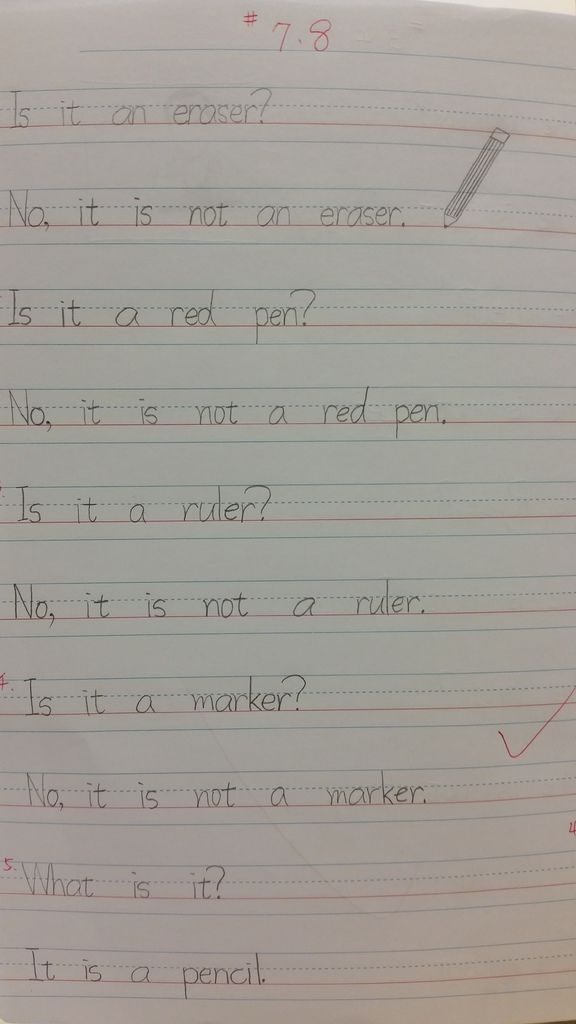 # 7.8
Is it an eraser?
No, it is not an eraser.
Is it a red pen?
No, it is not a red pen.
Is it a ruler?
No, it is not a ruler.
4. Is it a marker?
No, it is not a marker.
5. What is it?
It is a pencil.